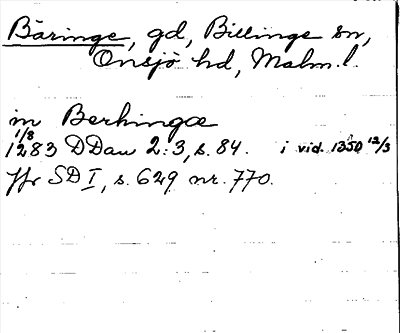 Bäringe, gd, Billinge sn,
Onsjö hd, Malm.l.
in Berhingæ
1/8
1283 DDan 2:3, s. 84. i vid. 1350 12/3
Jfr SD I, s. 629 nr. 770.